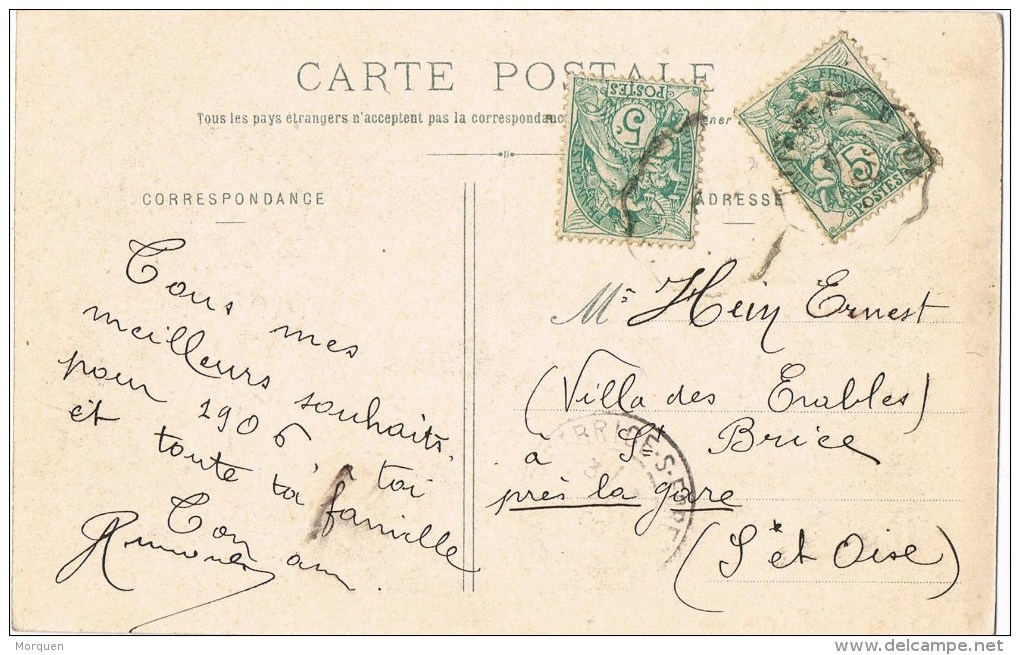 CARTE POSTALE
Tous les pays étrangers n'acceptent pas la correspondance
CORRESPONDANCE
ADRESSE
POSTES
5c
POSTES
5c
Tous mes
meilleurs souhaits
pour 1906 à toi
et toute ta famille
Ton ami
Mr Hein Ernest
(Villa des Erables)
à St Brice
près la gare
(S et Oise)
BRICE-S-FORET
Morquen
delcampe.net